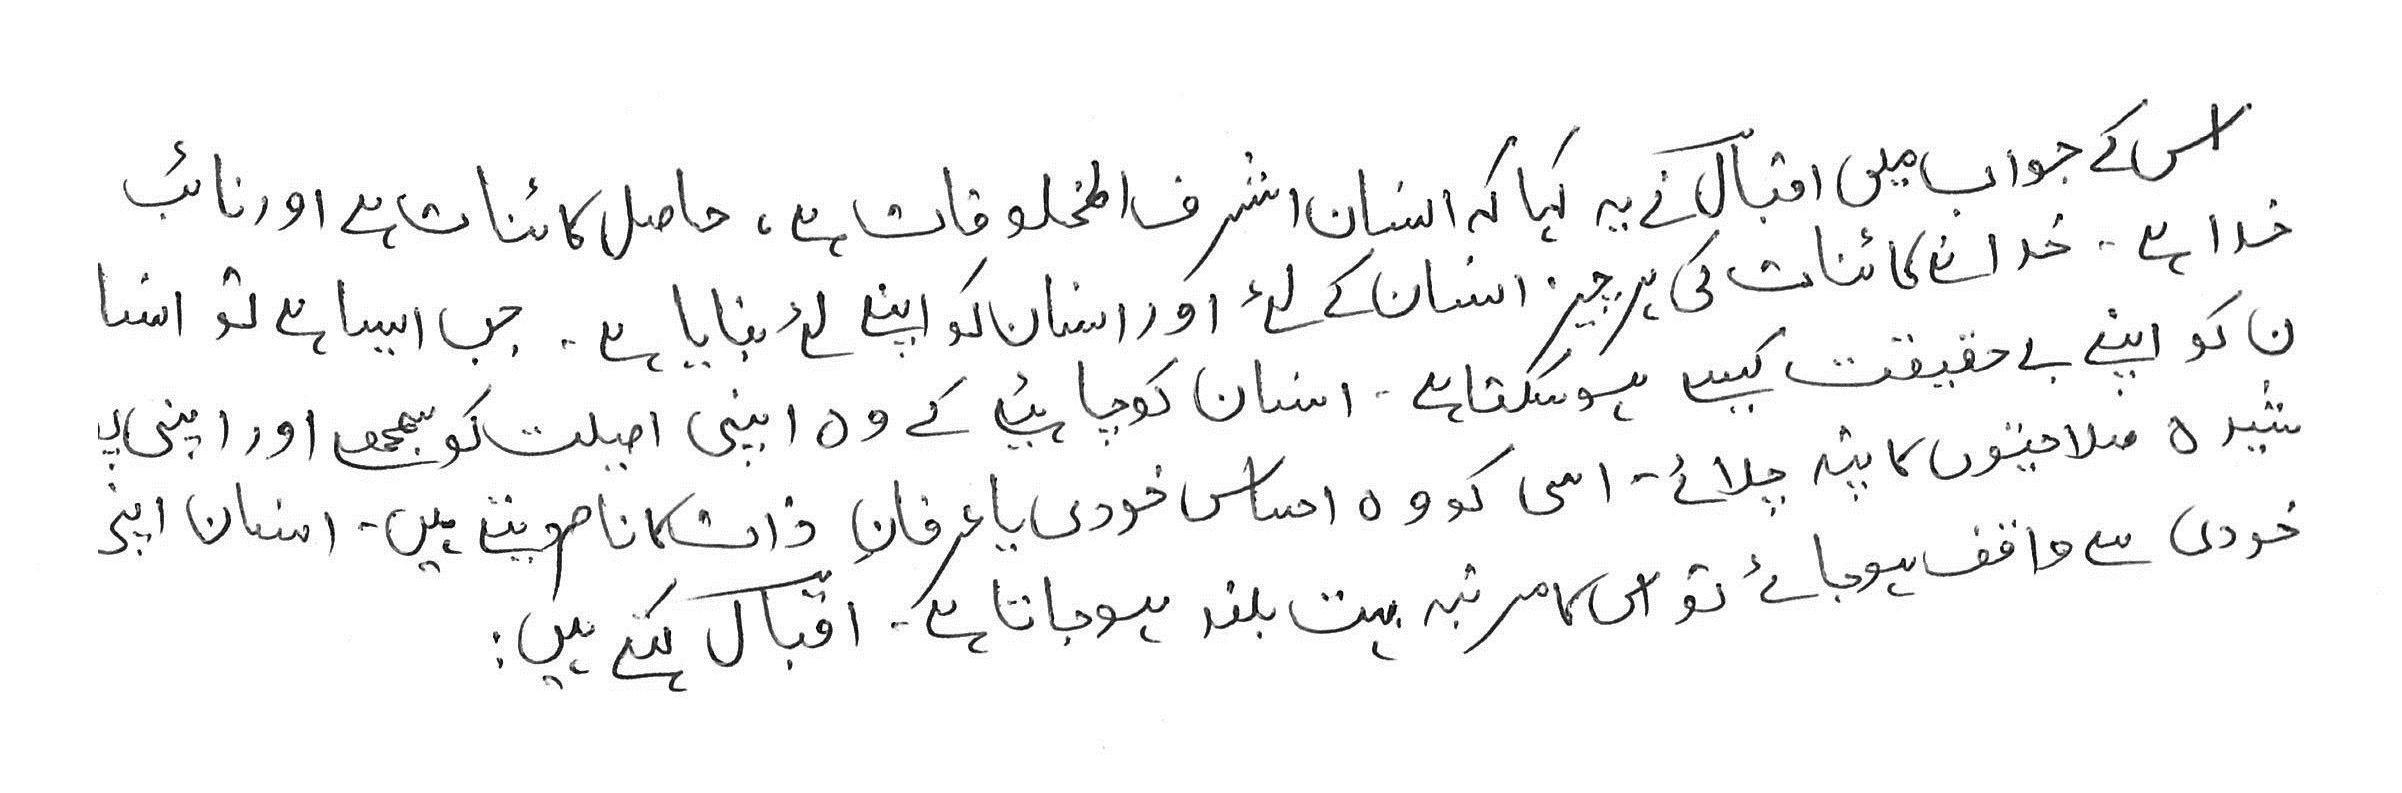 اس کے جواب میں اقبال نے یہ کہا کہ انسان اشرف المخلوقات ہے، حاصل کائنات ہے اور نائب
خدا ہے۔ خدا نے کائنات کی ہر چیز انسان کے لئے اور انسان کو اپنے لئے بنایا ہے۔ جب ایسا ہے تو انسا
ن کو اپنے بے حقیقت کیسے ہو سکتا ہے۔ انسان کو چاہیئے کے وہ اپنی اصیلت کو سمجھے اور اپنی پو
شیدہ صلاحیتوں کا پتہ چلائے۔ اسی کو وہ احساس خودی یا عرفانِ ذات کا نام دیتے ہیں۔ انسان اپنی
خودی سے واقف ہو جائے تو اس کا مرتبہ بہت بلند ہو جاتا ہے۔ اقبال کہتے ہیں: